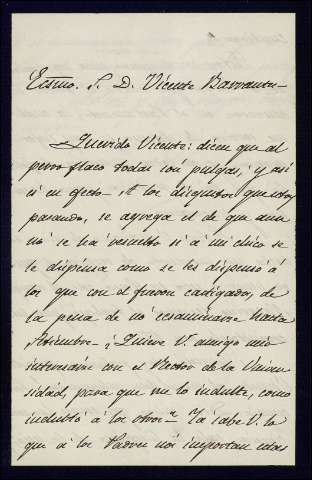 Ecsmo. S. D. Vicente Barrantes
Querido Vicente: dicen que al
perro flaco todas són pulgas; y asi
és en efecto. A los disgustos que estoy
pasando, se agrega el de que aun
nó se há resuelto si á mi chico se
le dispensa como se les dispensó á
los que con él fueron castigados, de
la pena de nó ecsaminarse hasta
Setiembre. ¿Quiere V. amigo mio
interesarse con el Rector de la Univer
sidad, para que me lo indulte, como
indultó á los otros? Yá sabe V. lo
que á los Padres nós importan estas